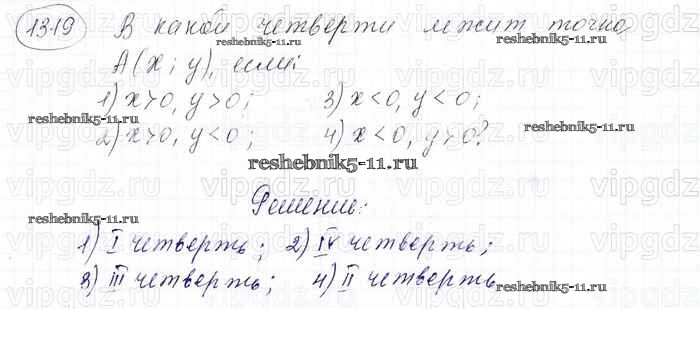 1319 В какой четверти лежит точка
reshebnik5-11.ru
A(x; y), если:
1) x>0, y>0; 3) x<0, y<0;
2) x>0, y<0; 4) x<0, y>0?
reshebnik5-11.ru
reshebnik5-11.ru
reshebnik5-11.ru
Решение:
reshebnik5-11.ru
1) I четверть; 2) IV четверть;
3) III четверть; 4) II четверть
reshebnik5-11.ru
vipgdz